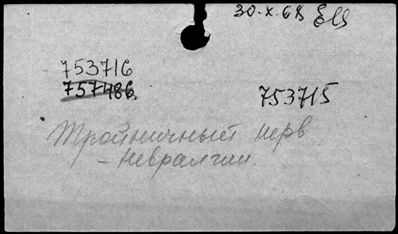 30.X.68
753716
757486.
753715
Тройничный нерв
- Невралгии.